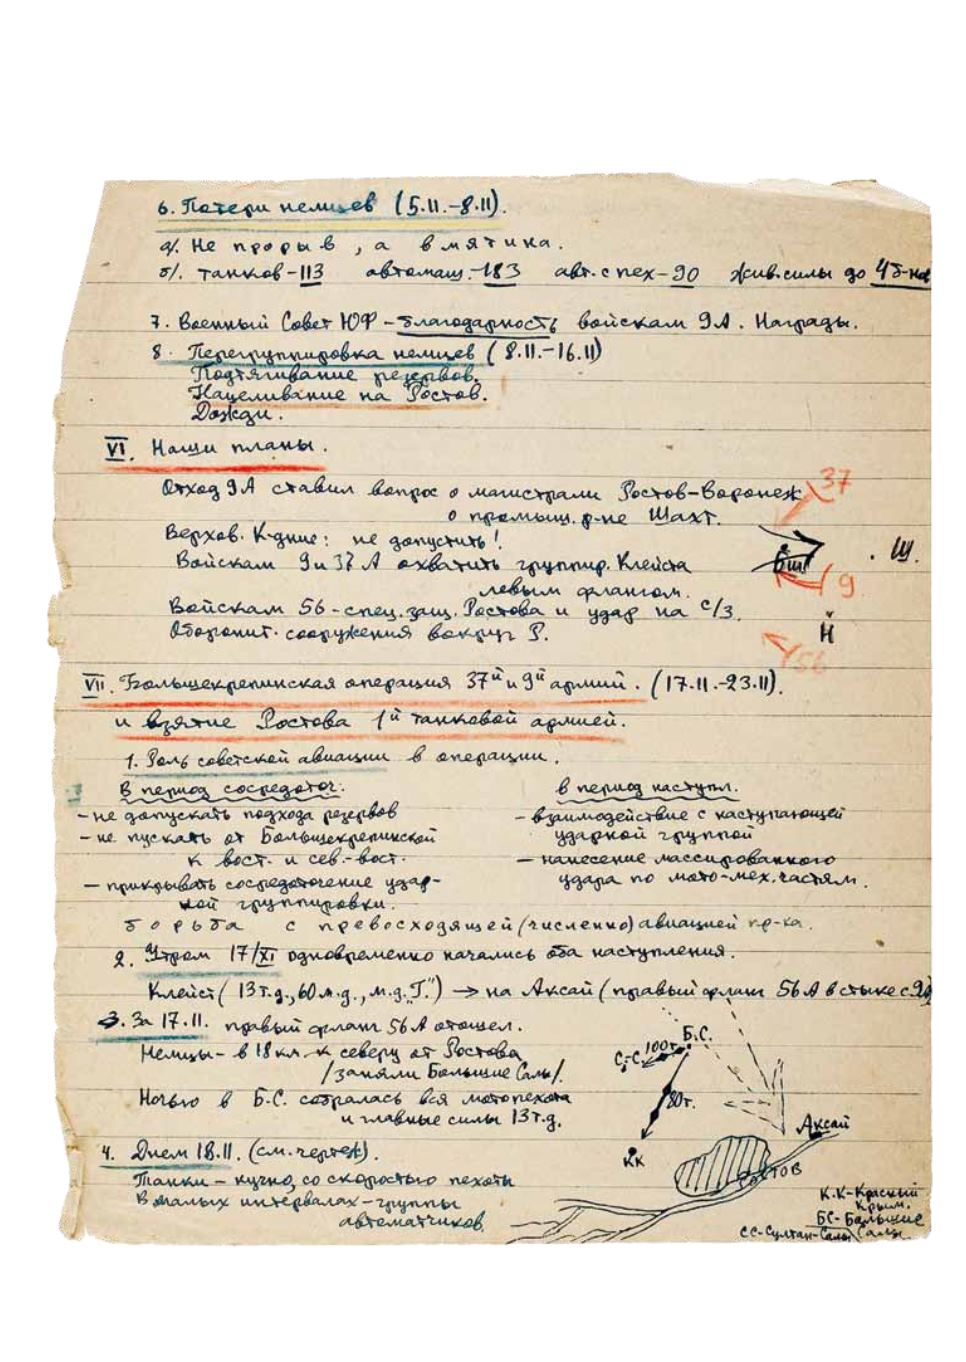 6. Потери немцев (5.11.-8.11).
а/. Не прорыв, а вмятина.
б/. танков-113 автомаш.-183 авт. с пех-90 жив.силы до 4 б-нов
7. Военный Совет ЮФ - благодарность войскам 9А. Награды.
8. Перегруппировка немцев (8.11.-16.11)
Подтягивание резервов.
Нацеливание на Ростов.
Дожди.
VI. Наши планы.
Отход 9А ставил вопрос о магистрали Ростов-Воронеж
о промыш. р-не Шахт.
37
Верхов. К-дние: не допустить!
Войскам 9 и 37 А охватить группир. Клейста
левым флангом.
Щ.
9
Войскам 56 - спец. защ. Ростова и удар на с/з.
Оборонит. сооружения вокруг Р.
Н
56
VII. Большекрепинская операция 37й и 9й армий. (17.11.-23.11).
и взятие Ростова 1й танковой армией.
1. Роль советской авиации в операции.
В период сосредоточ:
- не допускать подхода резервов
- не пускать от Большекрепинской
к вост. и сев.-вост.
- прикрывать сосредоточение удар-
ной группировки.
в период наступл.
- взаимодействие с наступающей
ударной группой
- нанесение массированного
удара по мото-мех.частям.
борьба с превосходящей (численно) авиацией пр-ка.
2. Утром 17/XI одновременно начались оба наступления.
Клейст (13 т.д., 60 м.д., м.д. "Г.") → на Аксай (правый фланг 56А в стыке с 9А)
3. За 17.11. правый фланг 56А отошел.
Немцы - в 18 км. к северу от Ростова
/заняли Большие Салы/.
Ночью в Б.С. собралась вся мотопехота
и главные силы 13 т.д.
4. Днем 18.11. (см. чертеж).
Танки - кучно, со скоростью пехоты
В малых интервалах - группы
автоматчиков.
Б.С.
С.-С.
100т.
80т.
КК
Аксай
Ростов
К.К-Красный
Крым.
БС-Большие
Салы
СС-Султан-Салы